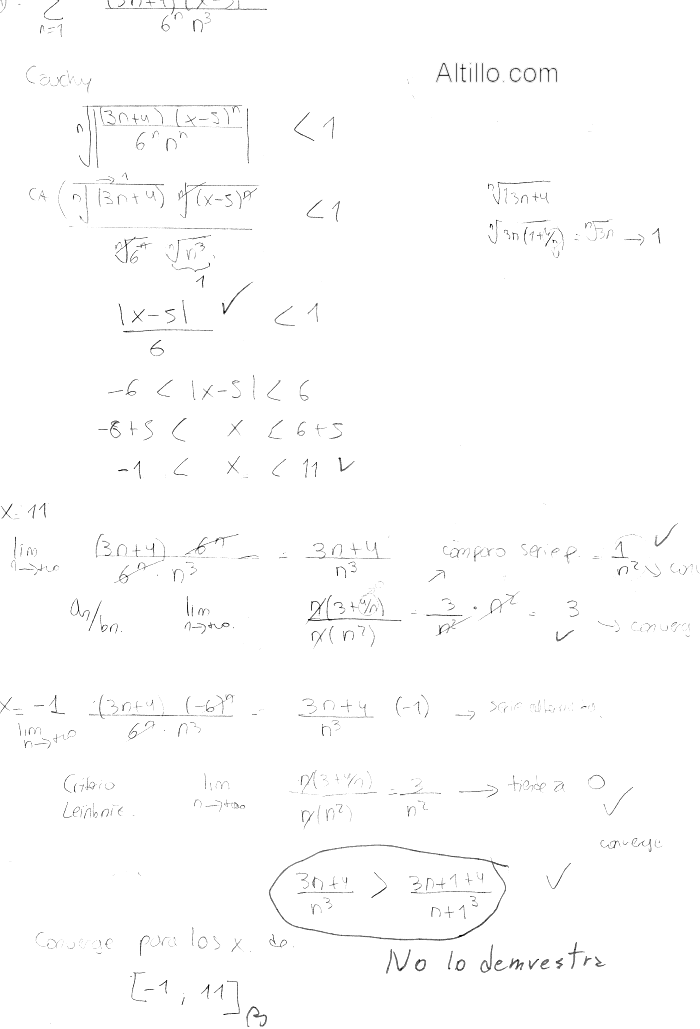 Σ n=1 (3n+4) (x-5) / 6ⁿ n³
Cauchy
Altillo.com
ⁿ√|(3n+4) (x-5)ⁿ / 6ⁿ nⁿ| < 1
CA ( ⁿ√(3n+4) → 1 ⁿ√(x-5)ⁿ / ⁿ√6ⁿ ⁿ√n³ 1 < 1
ⁿ√13n+4
ⁿ√3n(1+4/n) = ⁿ√3n → 1
|x-5| / 6 ✓ < 1
-6 < |x-5| < 6
-6+5 < x < 6+5
-1 < x < 11 ✓
x=11
lim n→+∞ (3n+4) 6ⁿ / 6ⁿ · n³ = 3n+4 / n³ comparo serie p. = 1/n² ✓ → conv
an/bn. lim n→+∞. n(3+4/n) / n(n²) = 3/n² · n² = 3 ✓ → converge
x=-1 lim n→+∞ (3n+4) (-6)ⁿ / 6ⁿ · n³ = 3n+4 / n³ (-1) → serie
Criterio lim n→+∞ n(3+4/n) / n(n²) = 3/n² → tiende a 0 ✓
Leibnitz.
converge
3n+4 / n³ > 3n+1+4 / n+1³ ✓
Converge para los x. de.
No lo demuestra
[-1, 11]